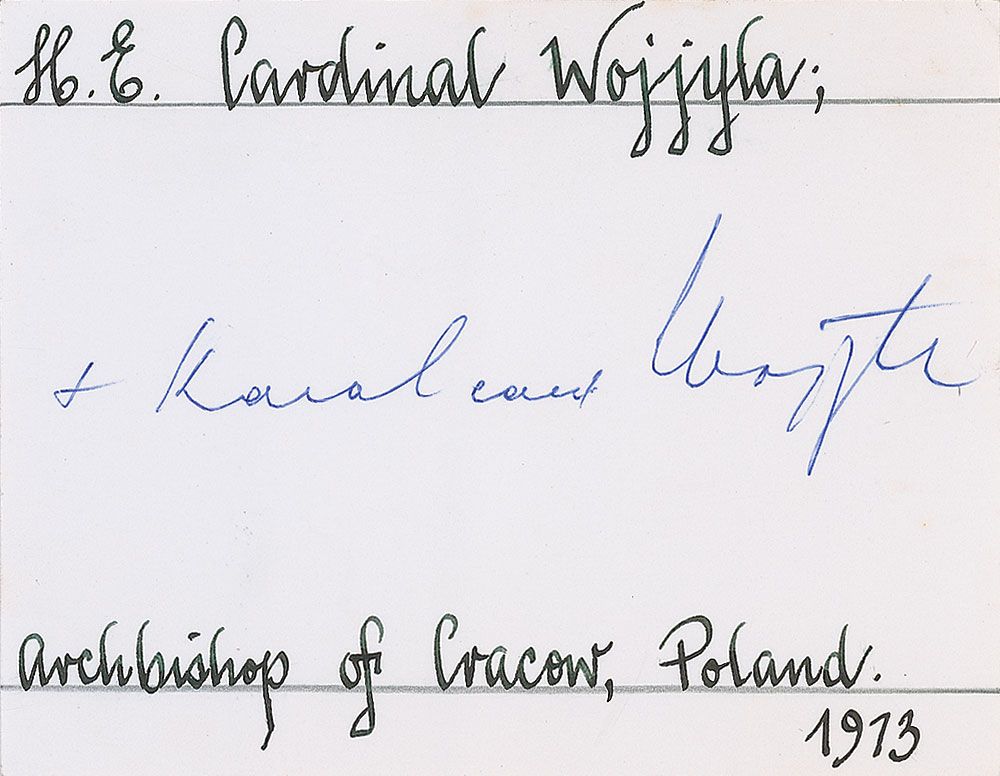 H. E. Cardinal Wojjyla;
+ Karol card Wojtyła
Archbishop of Cracow, Poland.
1973